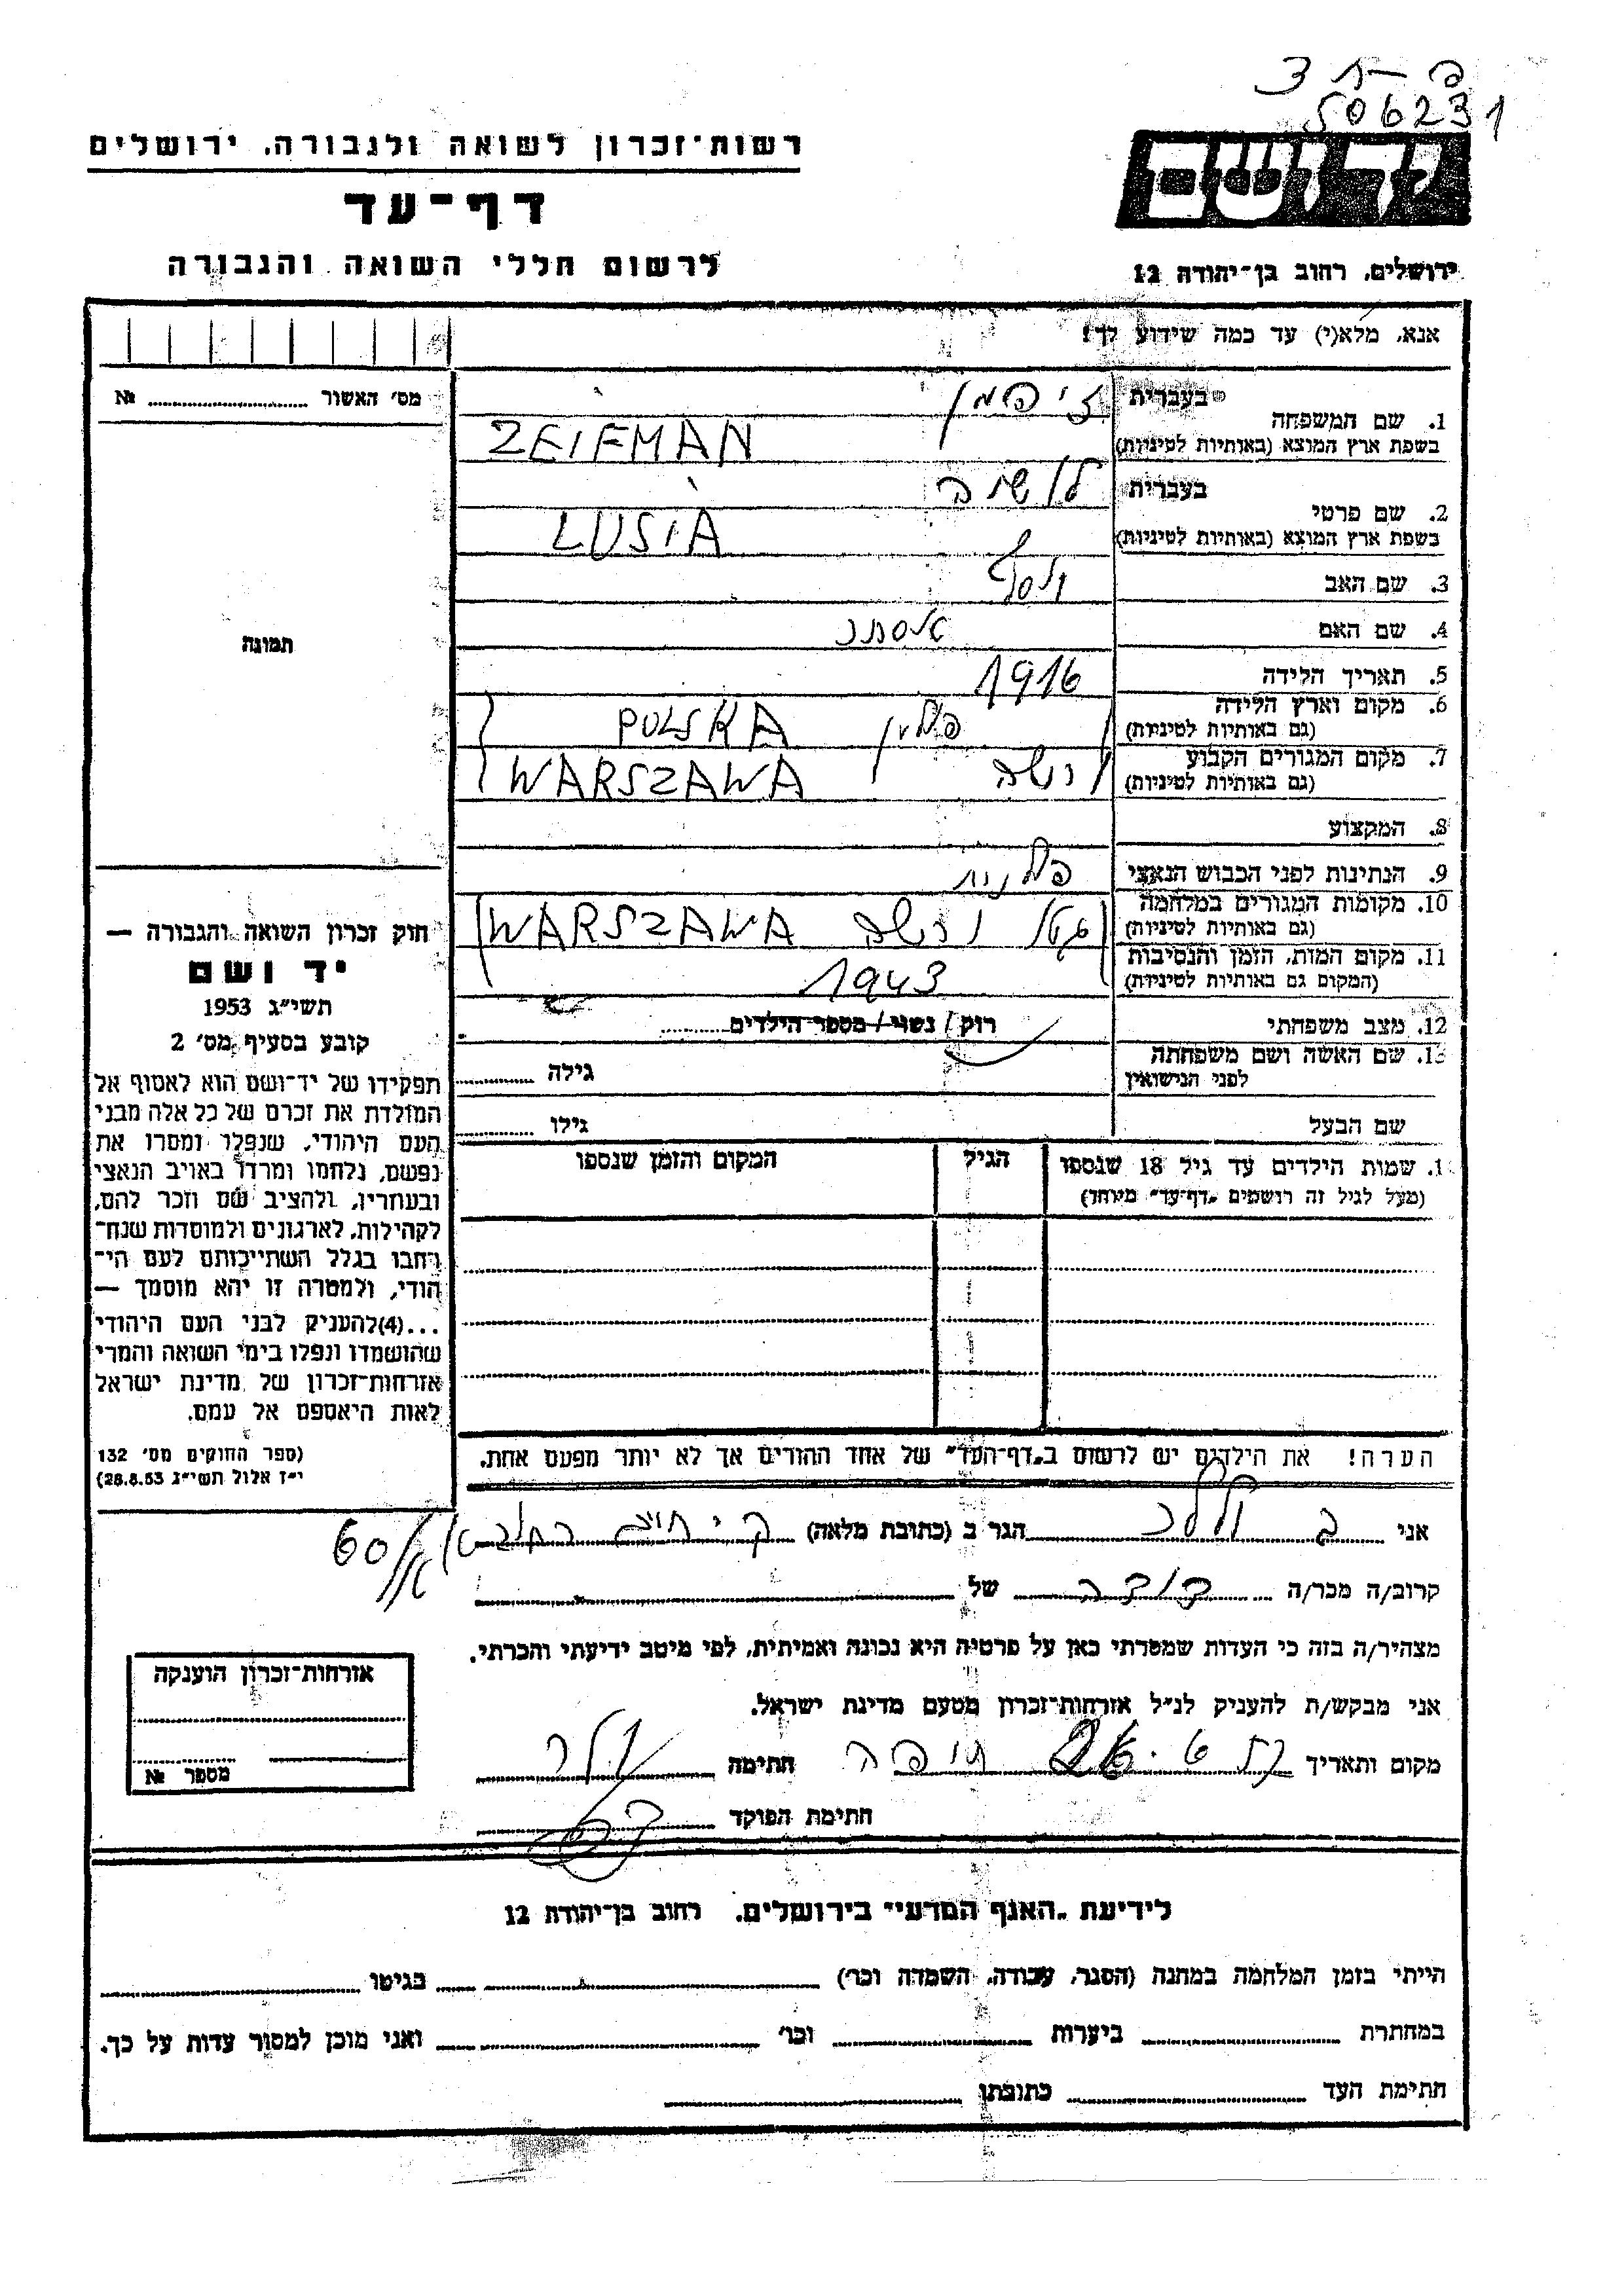 506231
רשות־זכרון לשואה ולגבורה, ירושלים
דף־עד
לרשום חללי השואה והגבורה
יד ושם
ירושלים, רחוב בן־יהודה 12
אנא, מלא(י) עד כמה שידוע לך!
מס׳ האשור № 
1. שם המשפחה
בעברית זיפמן
בשפת ארץ המוצא (באותיות לטיניות) ZEIFMAN
2. שם פרטי
בעברית לושיה
בשפת ארץ המוצא (באותיות לטיניות) LUSIA
3. שם האב יוסף
4. שם האם אסתר
5. תאריך הלידה 1916
6. מקום וארץ הלידה פולין POLSKA
(גם באותיות לטיניות)
7. מקום המגורים הקבוע ורשה WARSZAWA
(גם באותיות לטיניות)
8. המקצוע
9. הנתינות לפני הכבוש הנאצי פולנית
10. מקומות המגורים במלחמה גטו ורשה WARSZAWA
(גם באותיות לטיניות)
11. מקום המות, הזמן והנסיבות 1943
(המקום גם באותיות לטיניות)
12. מצב משפחתי רוק / נשוי / מספר הילדים
13. שם האשה ושם משפחתה גילה
לפני הנישואין
שם הבעל גילו
תמונה
חוק זכרון השואה והגבורה —
יד ושם
תשי״ג 1953
קובע בסעיף מס׳ 2
תפקידו של יד־ושם הוא לאסוף אל
המולדת את זכרם של כל אלה מבני
העם היהודי, שנפלו ומסרו את
נפשם, נלחמו ומרדו באויב הנאצי
ובעוזריו, ולהציב שם וזכר להם,
לקהילות, לארגונים ולמוסדות שנח־
רבו בגלל השתייכותם לעם הי־
הודי, ולמטרה זו יהא מוסמך —
...(4) להעניק לבני העם היהודי
שהושמדו ונפלו בימי השואה והמרי
אזרחות־זכרון של מדינת ישראל
לאות היאספם אל עמם.
(ספר החוקים מס׳ 132
י״ז אלול תשי״ג 28.8.53)
1. שמות הילדים עד גיל 18 שנספו הגיל המקום והזמן שנספו
(מעל לגיל זה רושמים „דף־עד״ מיוחד)
הערה! את הילדים יש לרשום ב„דף־העד״ של אחד ההורים אך לא יותר מפעם אחת.
אני הגר ב (כתובת מלאה) 60
קרוב/ה מכר/ה דודה של
מצהיר/ה בזה כי העדות שמסרתי כאן על פרטיה היא נכונה ואמיתית, לפי מיטב ידיעתי והכרתי.
אני מבקש/ת להעניק לנ״ל אזרחות־זכרון מטעם מדינת ישראל.
מקום ותאריך חיפה חתימה
חתימת הפוקד
אזרחות־זכרון הוענקה
מספר №
לידיעת „האגף המדעי״ בירושלים, רחוב בן־יהודה 12
הייתי בזמן המלחמה במחנה (הסגר, עבודה, השמדה וכו׳) בגיטו
במחתרת ביערות וכו׳ ואני מוכן למסור עדות על כך.
חתימת העד כתובתו